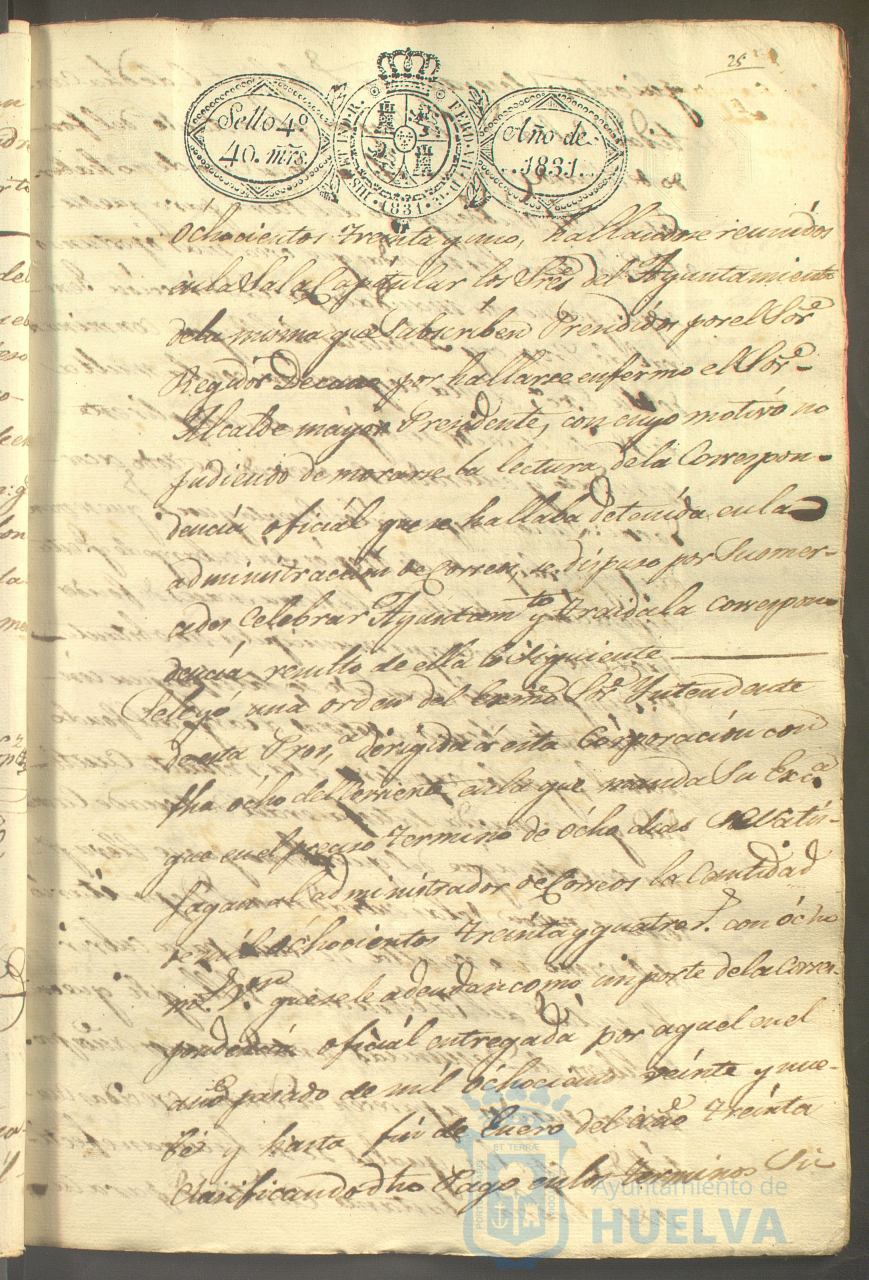 25
Sello 4º
40. mrs.
HISP. ET IND. R. FERD. VII. D. G.
1831
Año de
1831.
óchocientos treinta y uno, hallandose reunidos
en la Sala Capitular los Sres. del Ayuntamiento
de la misma que Subscriben Precididos por el Sor.
Regidor Decano por hallarse enfermo el Sor.
Alcalde mayor Presidente, con cuyo motivo no
pudiendo demorarse la lectura de la Correspon-
dencia oficiál que se hallaba detenida en la
administracion de Correos, se dispuso por Su mer-
cedes Celebrar Ayuntamto. y traida la correspon-
dencia resultó de ella lo Siguiente
Se leyó una orden del Exmo. Sor. Yntendente
de esta Prova. dirigida á esta Corporación con
fha ócho del corriente en la que manda Su Exca.
que en el preciso termino de ócho dias se Satis-
fagan al administrador de Correos la Cantidad
de mil óchocientos treinta y quatro rs. con ócho
mrs. Von. que se le adeudan como importe de la Corres-
pondencia oficiál entregada por aquel en el
año pasado de mil óchocientos veinte y nue-
be y hasta fin de Enero del año treinta
Clasificando dho Pago en los terminos Sig
Ayuntamiento de
HUELVA